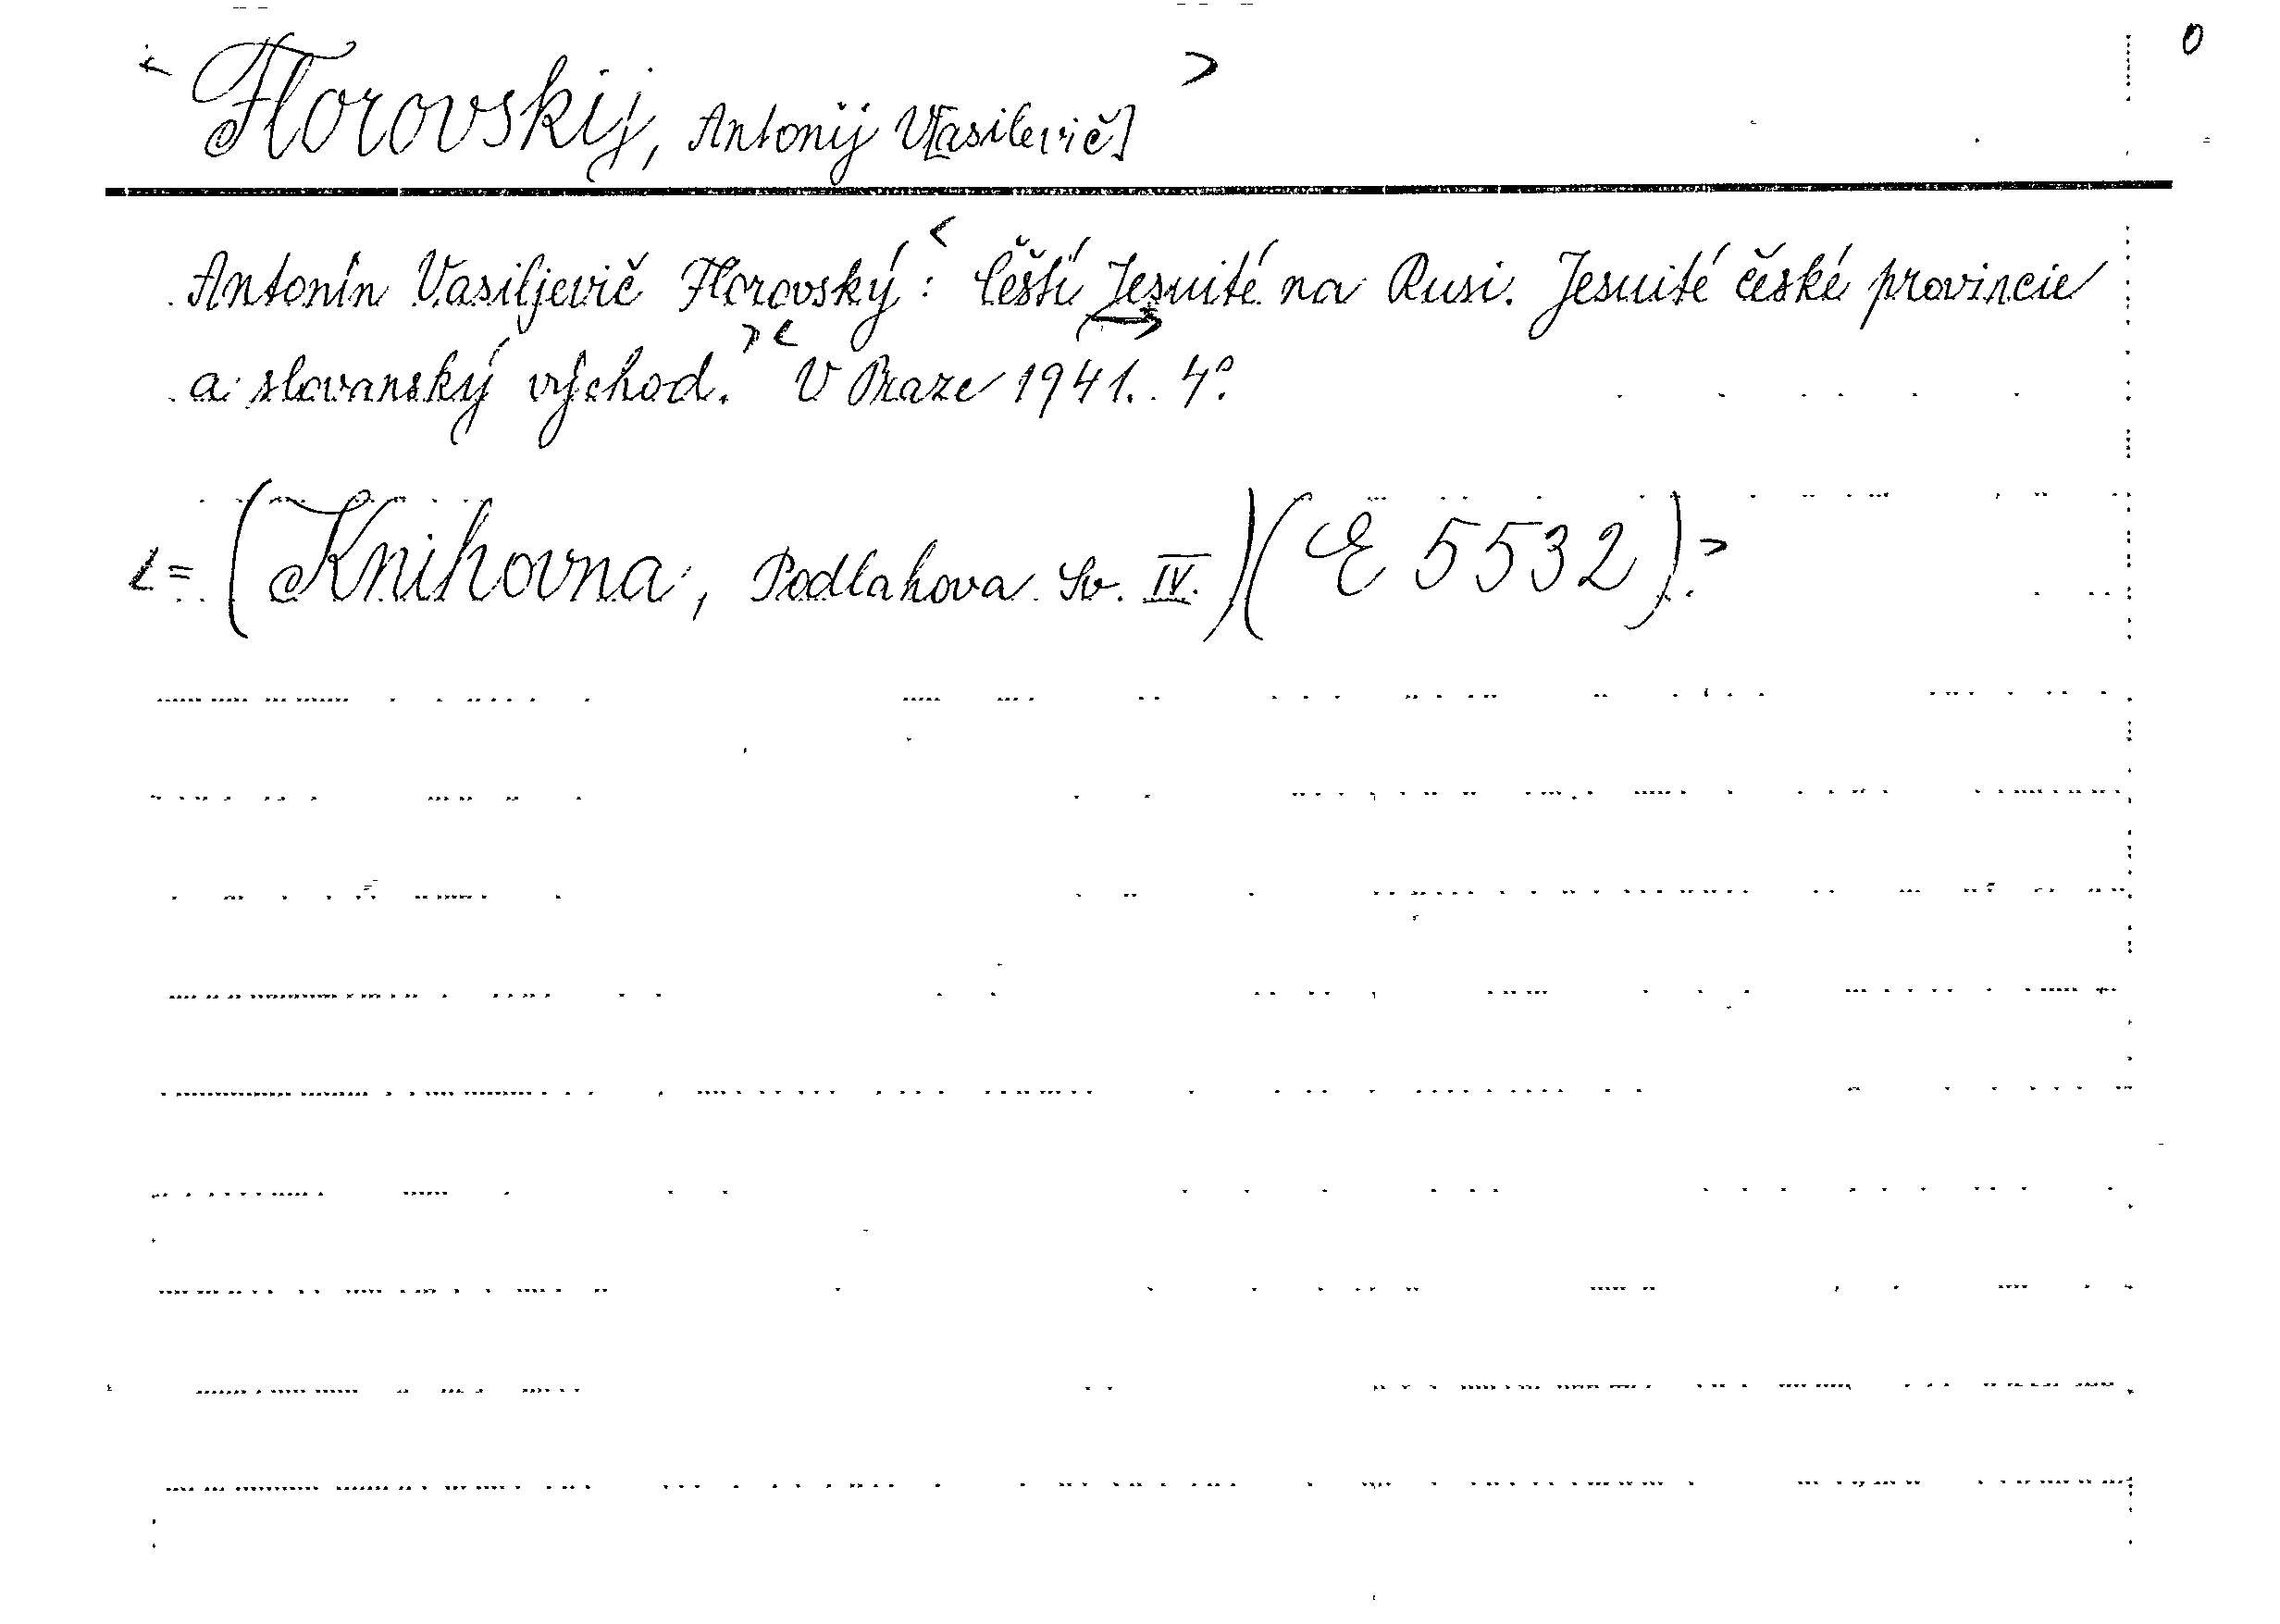 < Florovskij, Antonij V[asilevič] > 0
Antonín Vasiljevič Florovský: < Čeští Jesuité na Rusi. Jesuité české provincie
a slovanský východ. > < V Praze 1941. 4°.
<= (Knihovna, Podlahova Sv. IV.) (E 5532). >